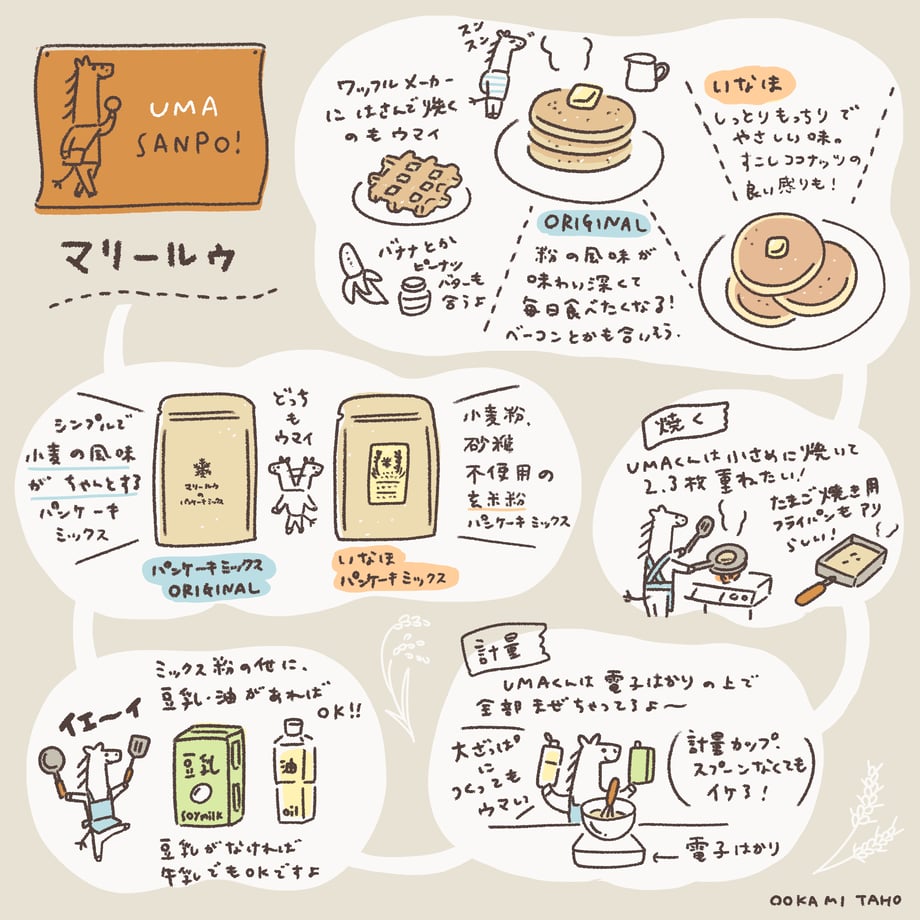 UMA
SANPO!
マリールゥ
シンプルで
小麦の風味
が ちゃんとする
パンケーキ
ミックス
マリールゥ
の
パンケーキミックス
どっち
も
ウマイ
小麦粉、
砂糖
不使用の
玄米粉
パンケーキミックス
パンケーキミックス
ORIGINAL
いなほ
パンケーキミックス
イエーイ
ミックス粉の他に、
豆乳・油があれば
OK!!
豆乳
SOYmilk
油
oil
豆乳がなければ
牛乳でもOKですよ
計量
UMAくんは電子はかりの上で
全部まぜちゃってるよ〜
大ざっぱ
に
つくっても
ウマい
計量カップ、
スプーンなくても
イケる!
←電子はかり
焼く
UMAくんは小さめに焼いて
2.3枚重ねたい!
たまご焼き用
フライパンもアリ
らしい!
スン
スン
ワッフルメーカー
にはさんで焼く
のもウマイ
バナナとか
ピーナッツ
バターも
合うよ
ORIGINAL
粉の風味が
味わい深くて
毎日食べたくなる!
ベーコンとかも合いそう.
いなほ
しっとりもっちりで
やさしい味。
すこしココナッツの
良い感りも!
OOKAMI TAHO